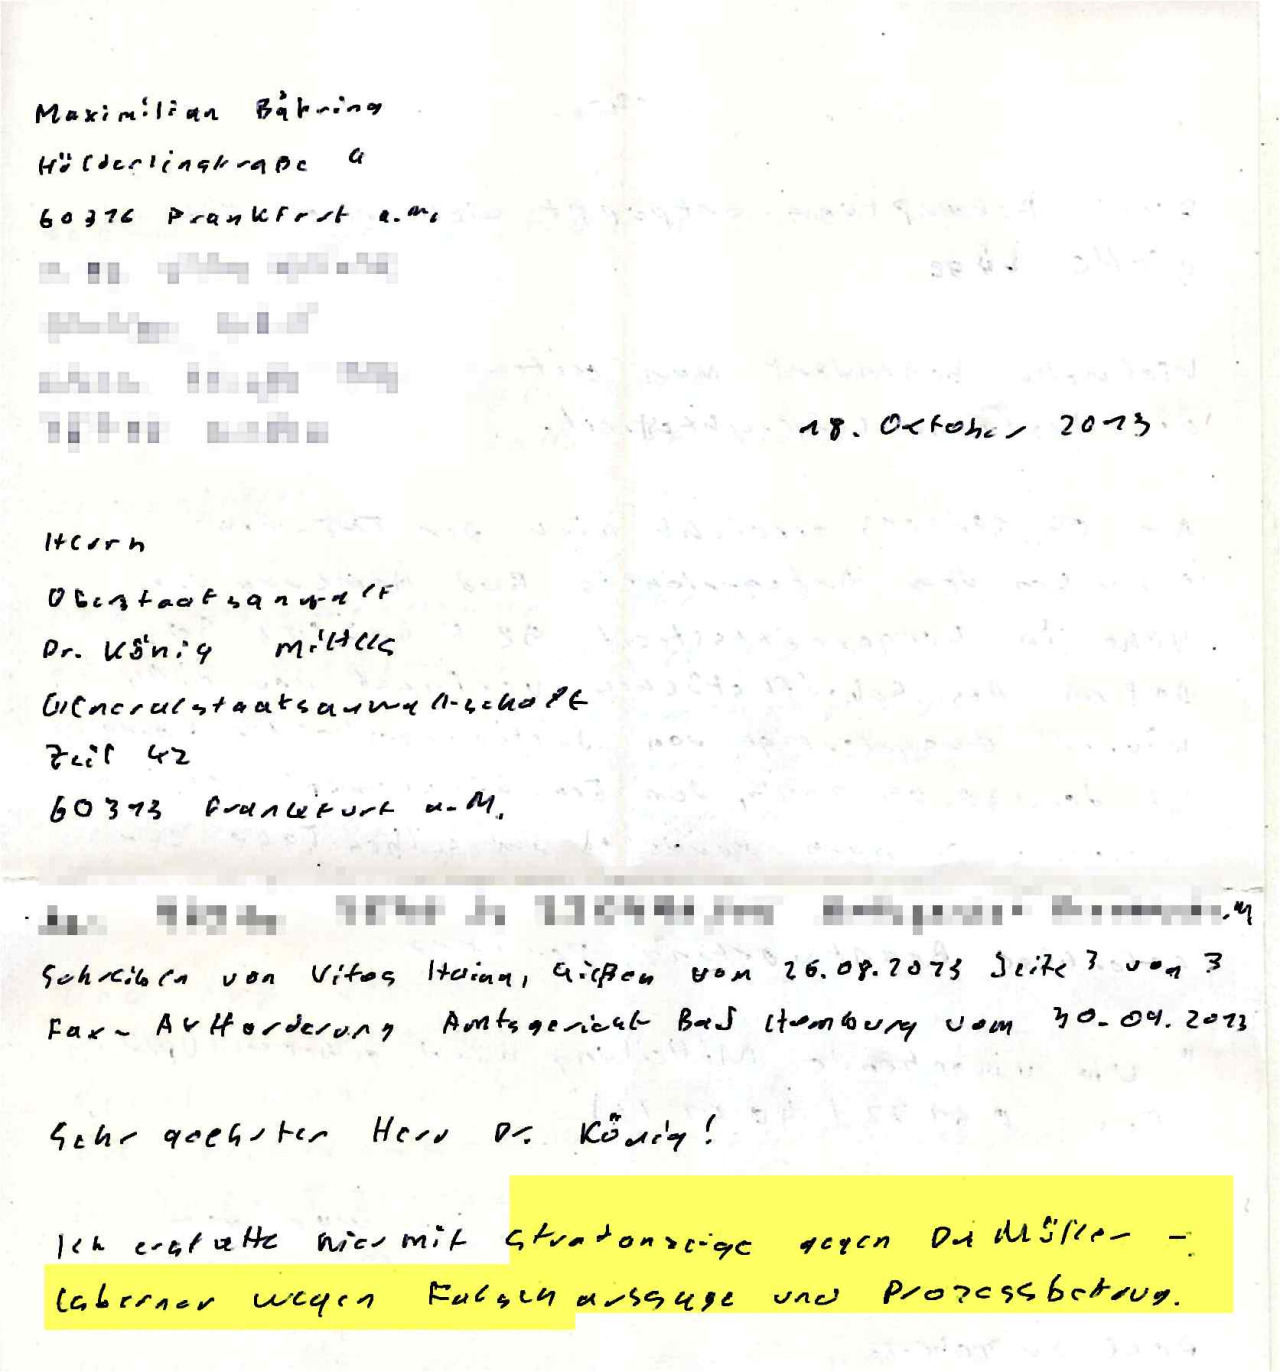 Maximilian Bähring
Hölderlinstraße 4
60316 Frankfurt a.M.
18. Oktober 2013
Herrn
Oberstaatsanwalt
Dr. König mittels
Generalstaatsanwaltschaft
Zeil 42
60313 Frankfurt a.M.
Schreiben von Vitos Haina, Gießen vom 26.08.2013 Seite 3 von 3
Fax- Anforderung Amtsgericht Bad Homburg vom 30.09.2013
Sehr geehrter Herr Dr. König!
Ich erstatte hiermit Strafanzeige gegen Dr. Müller-
wegen Falschaussage und Prozessbetrug.